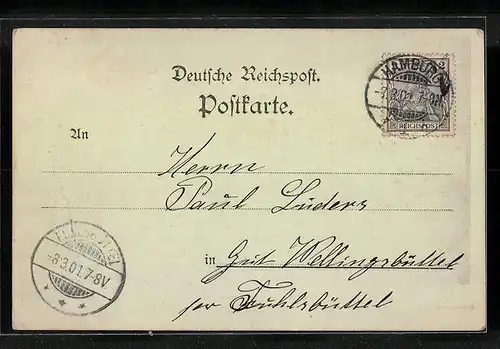 Deutsche Reichspost.
Postkarte.
HAMBURG
2
REICHSPOST
An
Herrn
Paul Lüders
in Gut Wellingsbüttel
per Fuhlsbüttel
-8.3.01.7-8V